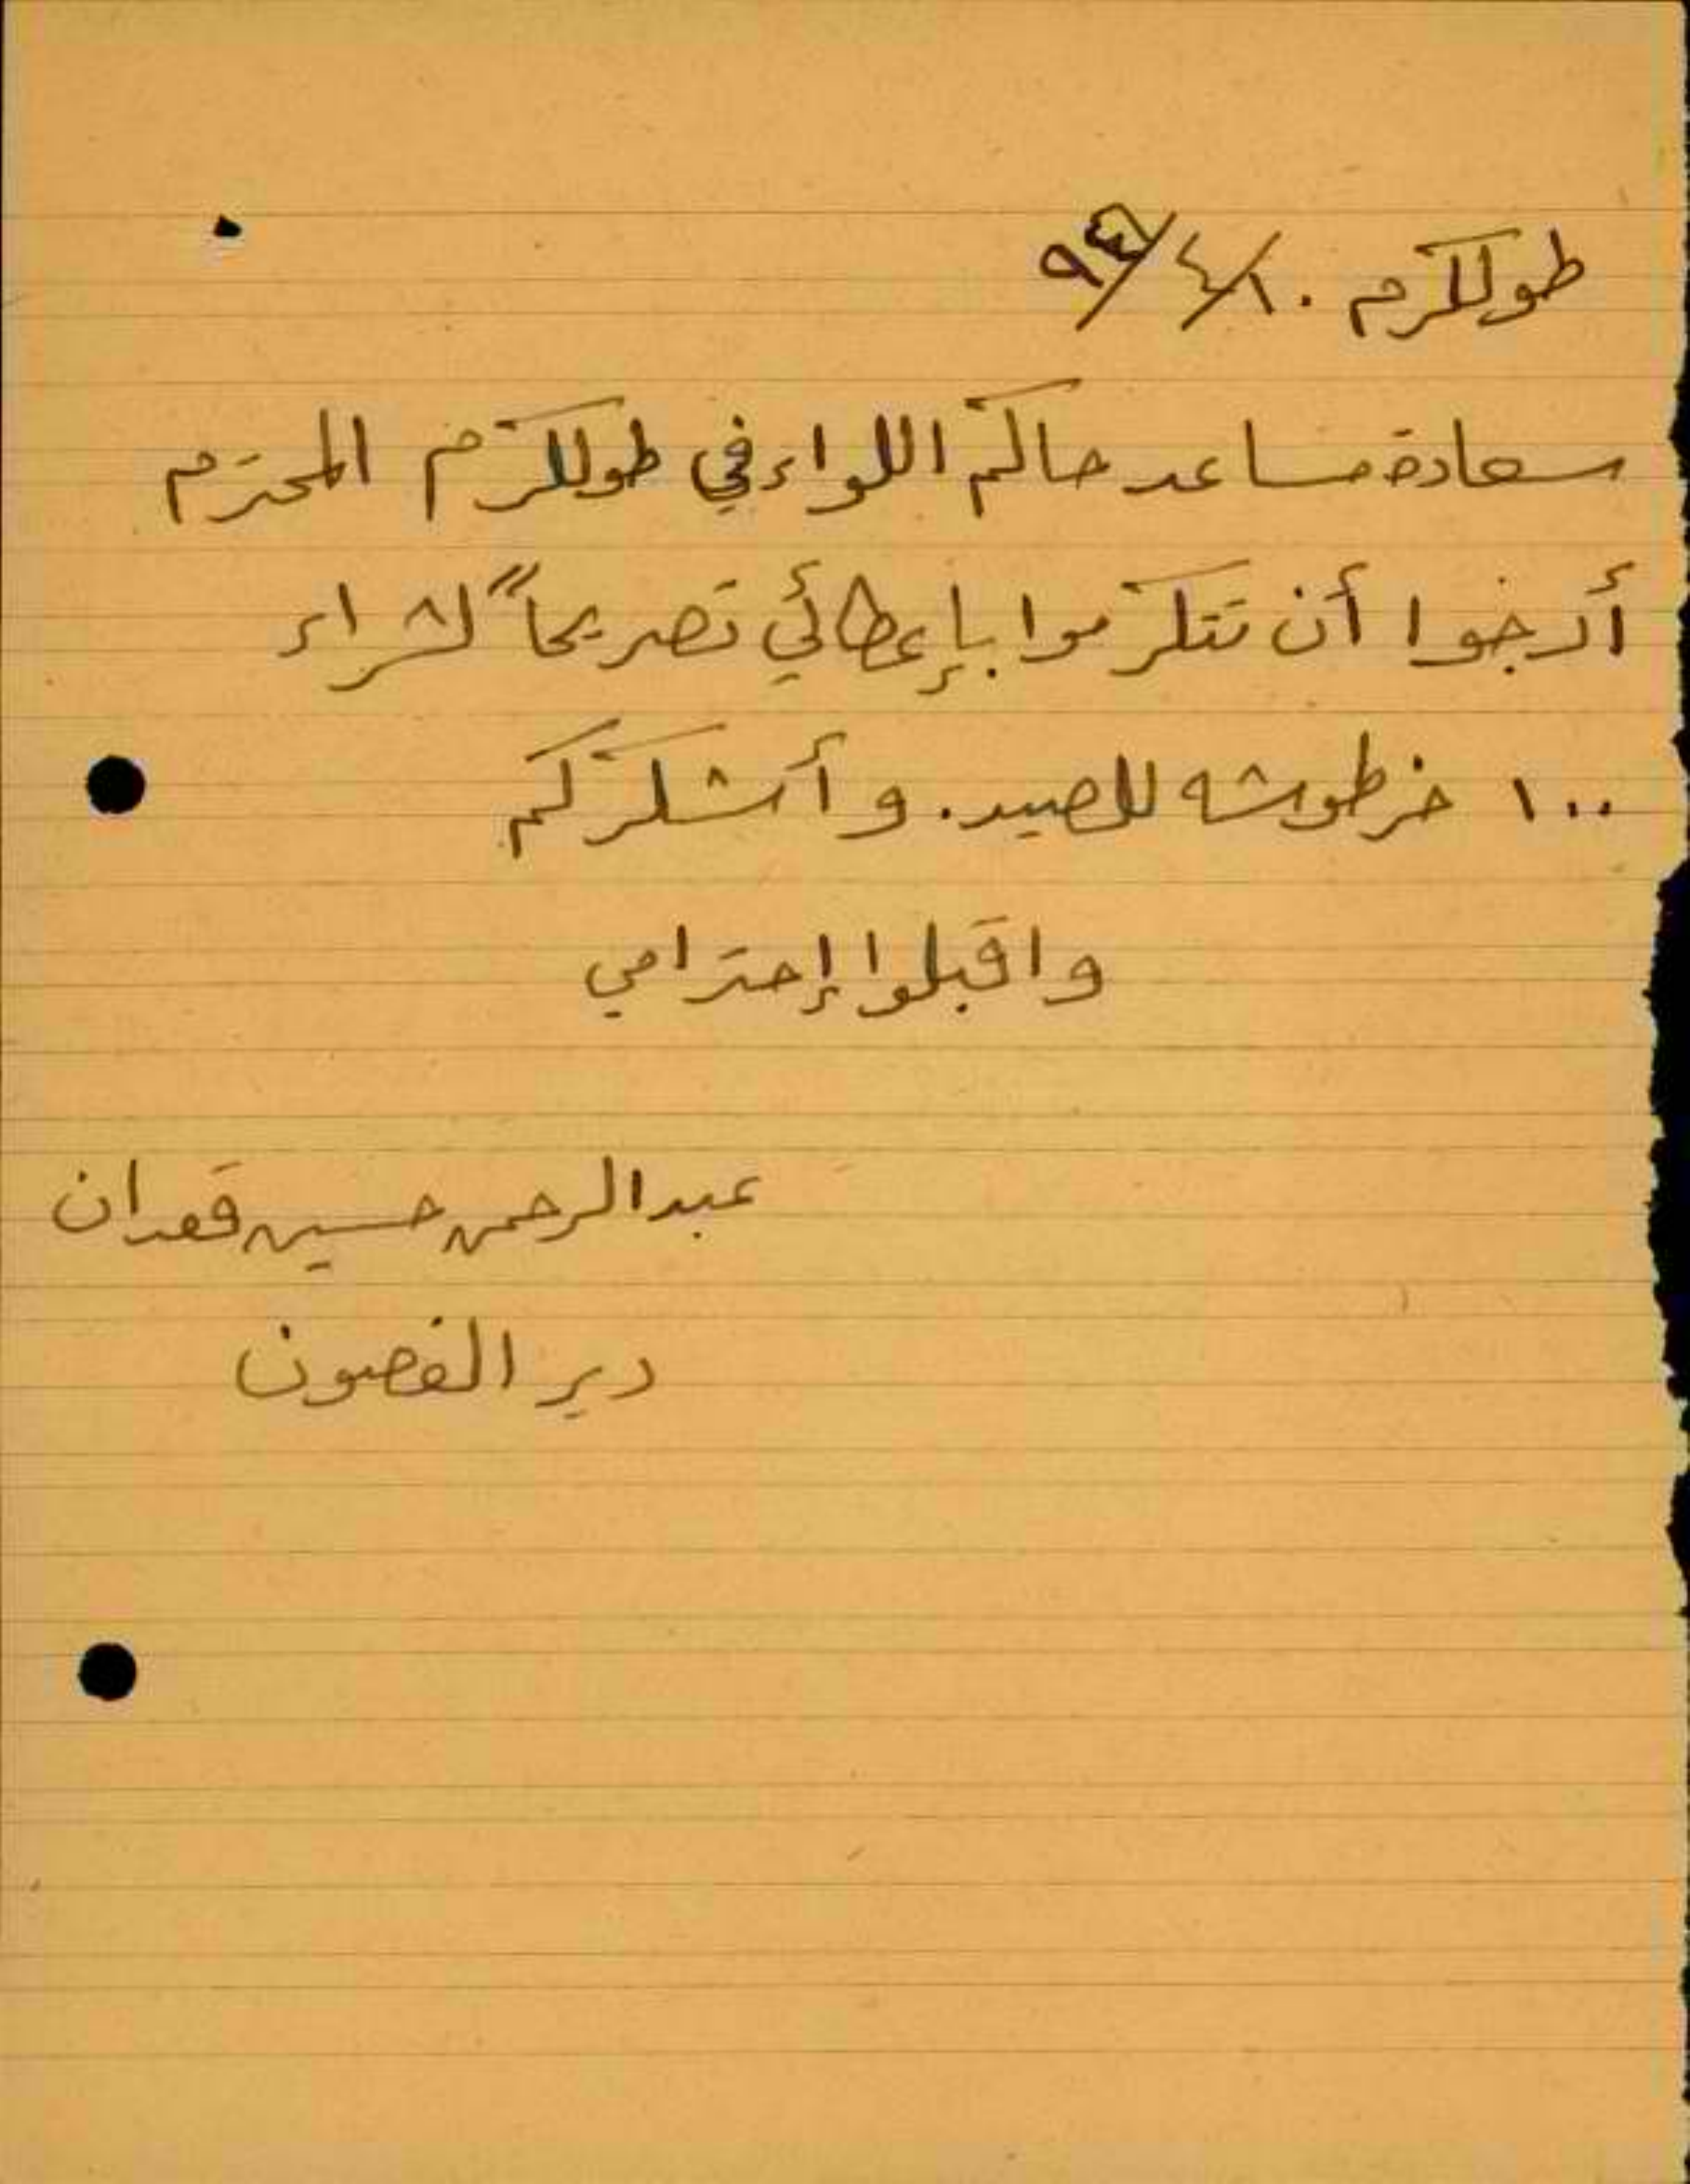 طولكرم ١٠/٤/
سعادة مساعد حاكم اللواء في طولكرم المحترم
أرجوا أن تتكرموا بإعطائي تصريحاً لشراء
١٠٠ خرطوشه للصيد. وأشكركم
واقبلوا إحترامي
عبدالرحمن حسين قعدان
دير الغصون